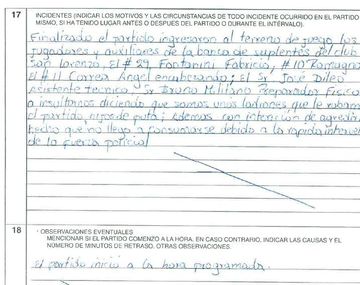 17
INCIDENTES (INDICAR LOS MOTIVOS Y LAS CIRCUNSTANCIAS DE TODO INCIDENTE OCURRIDO EN EL PARTIDO
MISMO, SI HA TENIDO LUGAR ANTES O DESPUES DEL PARTIDO O DURANTE EL INTERVALO).
Finalizado el partido ingresaron al terreno de juego los
jugadores y auxiliares de la banca de suplentes del club
San Lorenzo, El # 29 Fontanini Fabricio, # 10 Romagno
El # 11 Correa Angel encabezando; el Sr José Di Leo
asistente tecnico, Sr Bruno Militano Preparador Fisico
a insultarnos diciendo que somos unos ladrones, que le robaron
el partido, hijos de puta; Ademas con intención de agredir
hecho que no llego a consumarse debido a la rapida interv
de la fuerza policial
18
OBSERVACIONES EVENTUALES
MENCIONAR SI EL PARTIDO COMENZO A LA HORA. EN CASO CONTRARIO, INDICAR LAS CAUSAS Y EL
NÚMERO DE MINUTOS DE RETRASO, OTRAS OBSERVACIONES.
El partido inició a la hora programada.